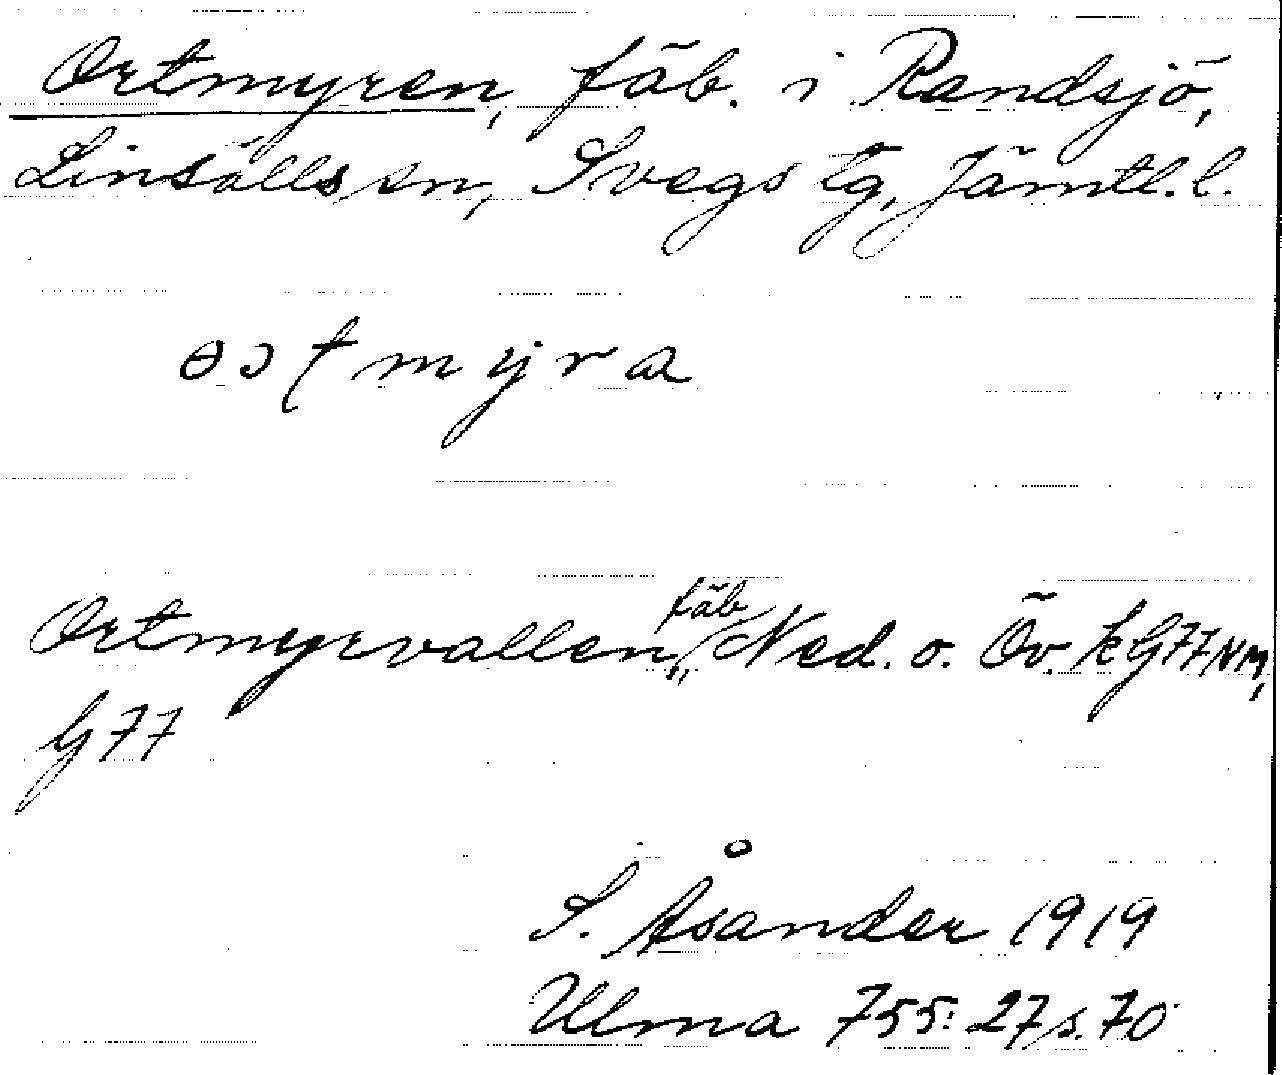 Ortmyren, fäb. i Randsjö,
Linsälls sn, Svegs tg, Jämtl. l.
ɵɔtmyra
Ortmyrvallen, fäb, Ned. o. Öv. kG77NM,
G77
S. Åsander 1919
Ulma 755:27 s. 70